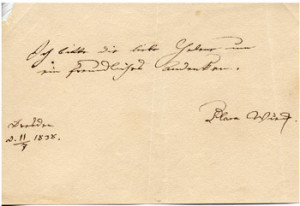 Ich bitte die liebe um
ein freundliches Andenken.
Clara Wieck.
Dresden
d. 11/9 1838.